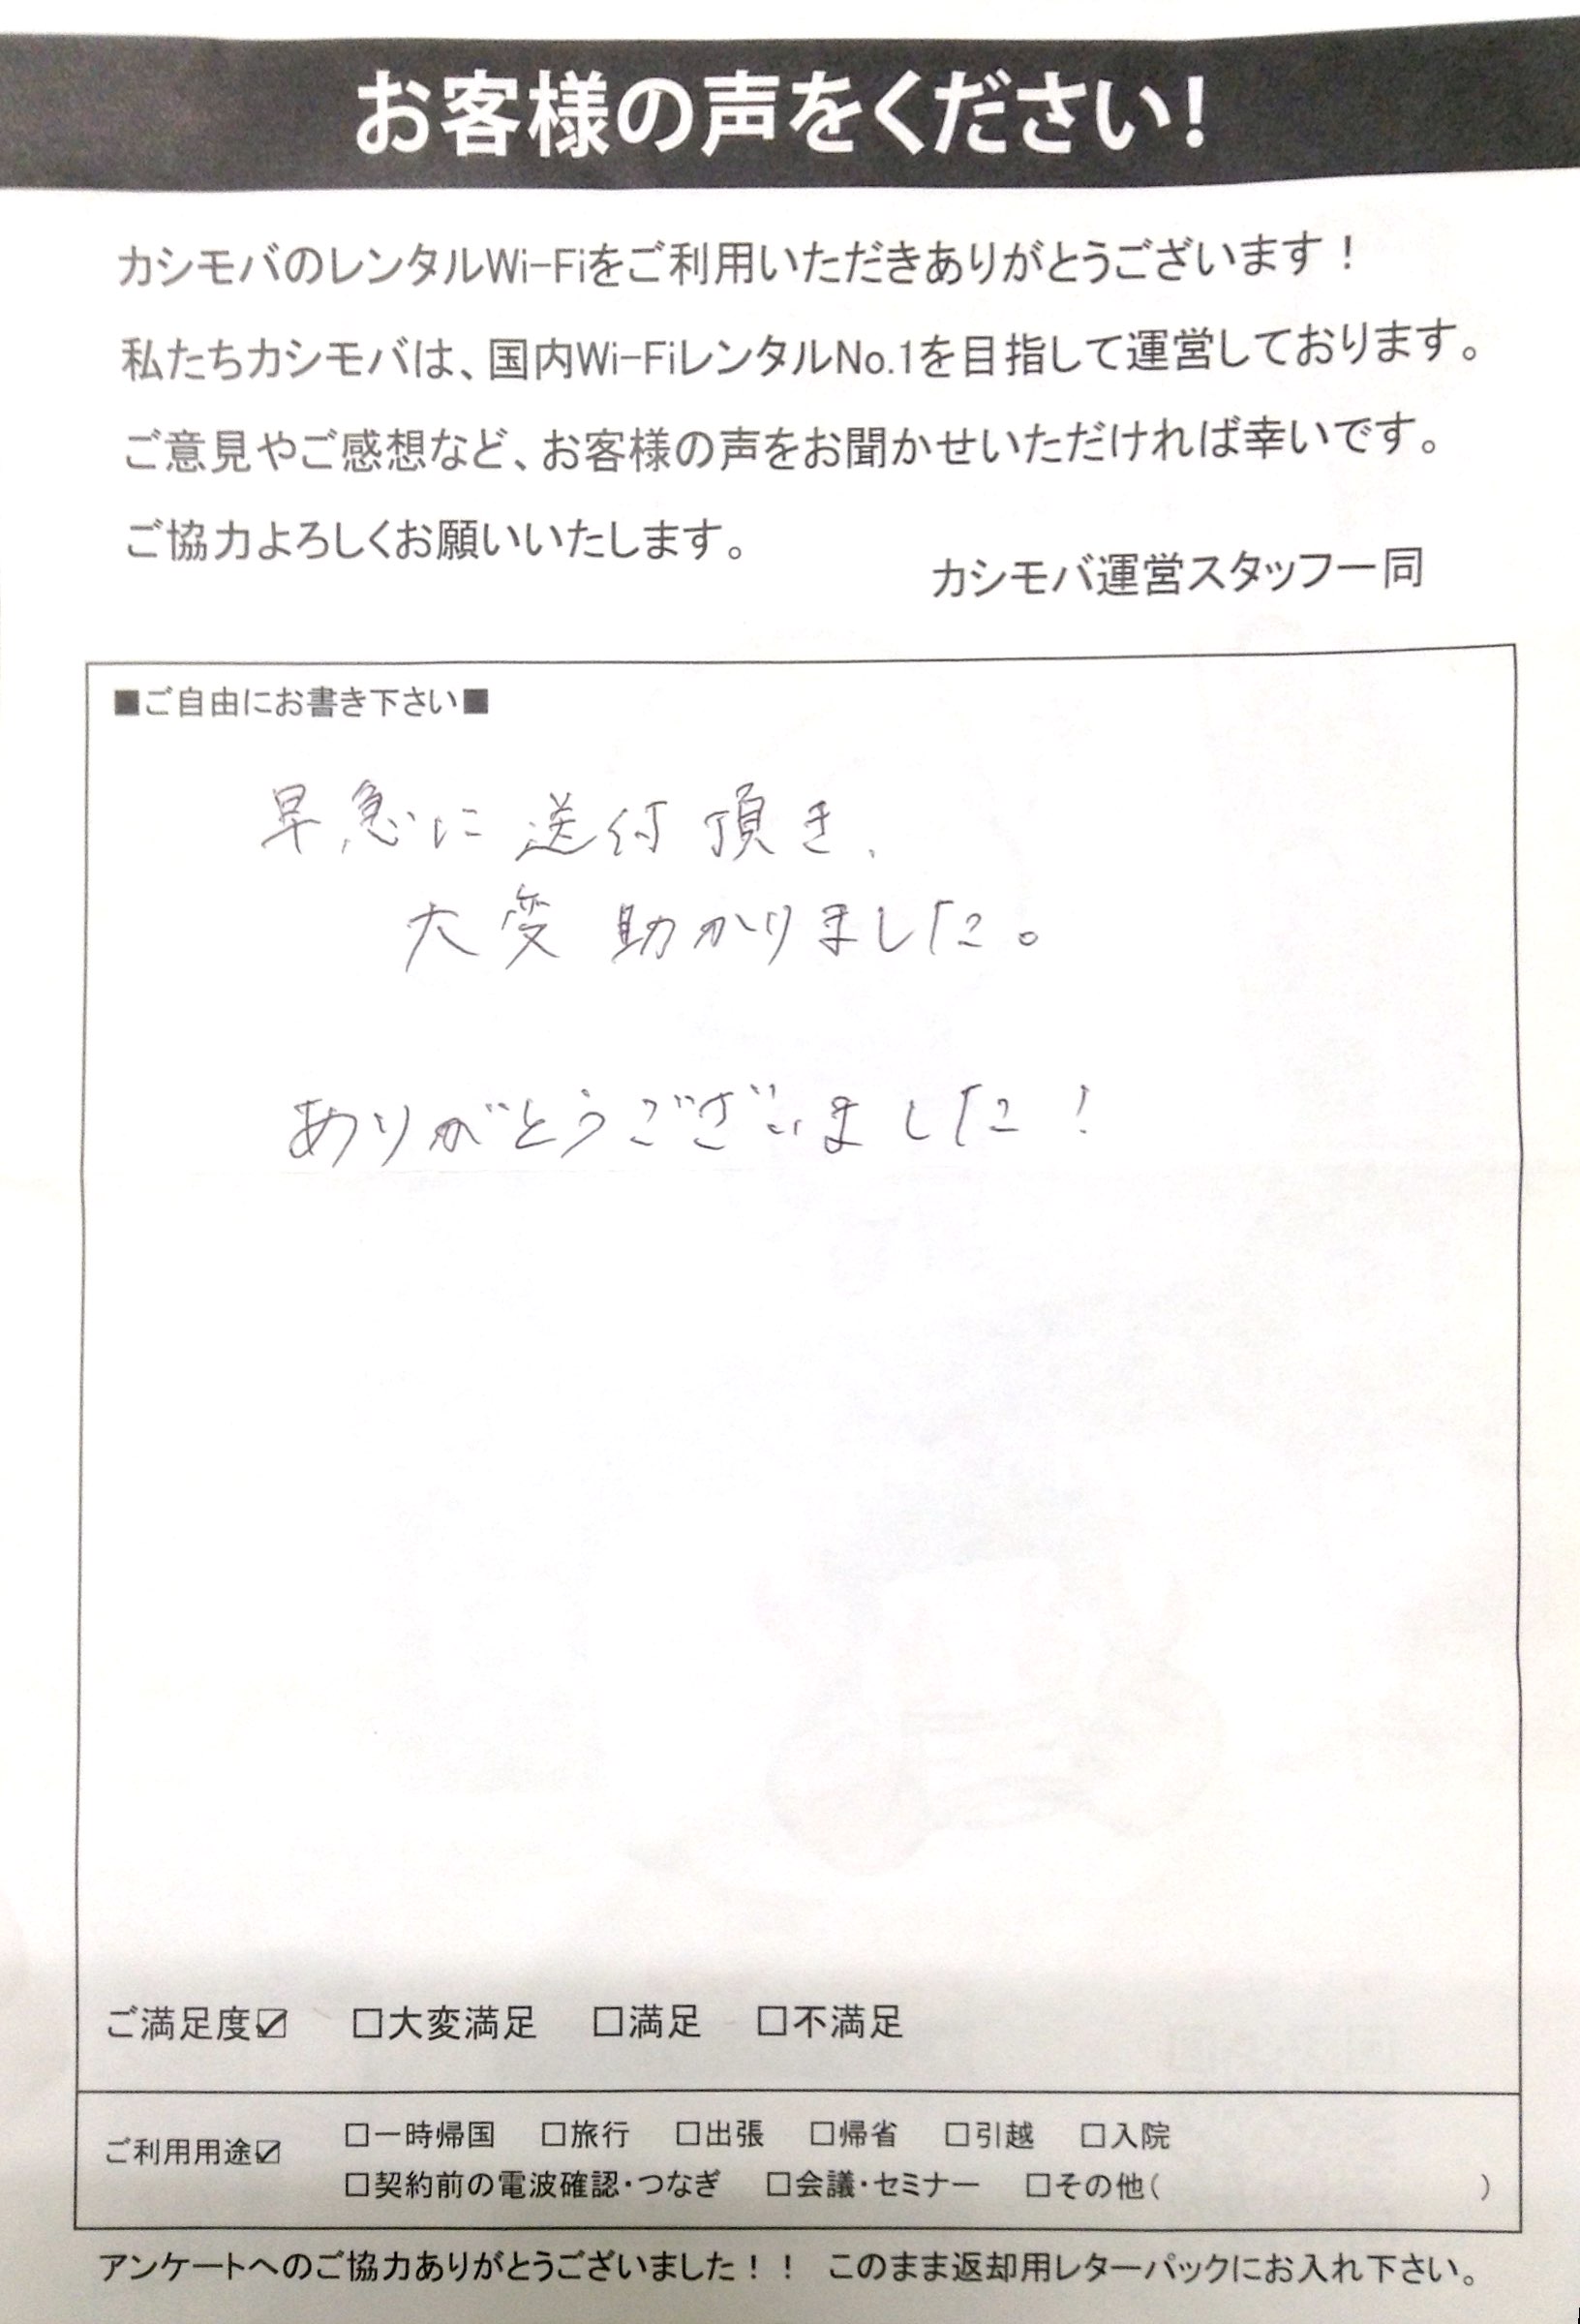 お客様の声をください!
カシモバのレンタルWi-Fiをご利用いただきありがとうございます！
私たちカシモバは、国内Wi-FiレンタルNo.1を目指して運営しております。
ご意見やご感想など、お客様の声をお聞かせいただければ幸いです。
ご協力よろしくお願いいたします。
カシモバ運営スタッフ一同
■ご自由にお書き下さい■
早急に送付頂き、
大変助かりました。
ありがとうございました！
ご満足度☑ □大変満足 □満足 □不満足
ご利用用途☑ □一時帰国 □旅行 □出張 □帰省 □引越 □入院
□契約前の電波確認・つなぎ □会議・セミナー □その他( )
アンケートへのご協力ありがとうございました！！ このまま返却用レターパックにお入れ下さい。